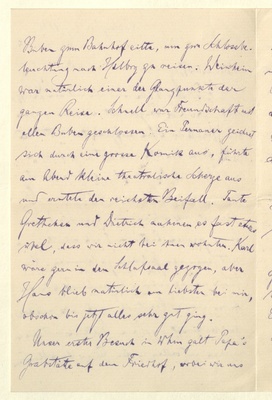 Buben zum Bahnhof eilte, um zur Schlossbe-
leuchtung nach Hdlbg zu reisen. Weinheim
war natürlich einer der Glanzpunkte der
ganzen Reise. Schnell war Freundschaft mit
allen Buben geschlossen. Ein Primaner zeichnet
sich durch eine grosse Komik aus, führte
am Abend kleine theatralische Scherze aus
und erntete den reichsten Beifall. Tante
Gretchen und Dietrich nahmen es fast etwas
übel, dass wir nicht bei ihnen wohnten. Karl
wäre gern in den Schlafsaal gezogen, aber
Hans blieb natürlich am liebsten bei mir,
obschon bis jetzt alles sehr gut ging.
Unser erster Besuch in Whm galt Papa's
Grabstätte auf dem Friedhof, wobei wir uns